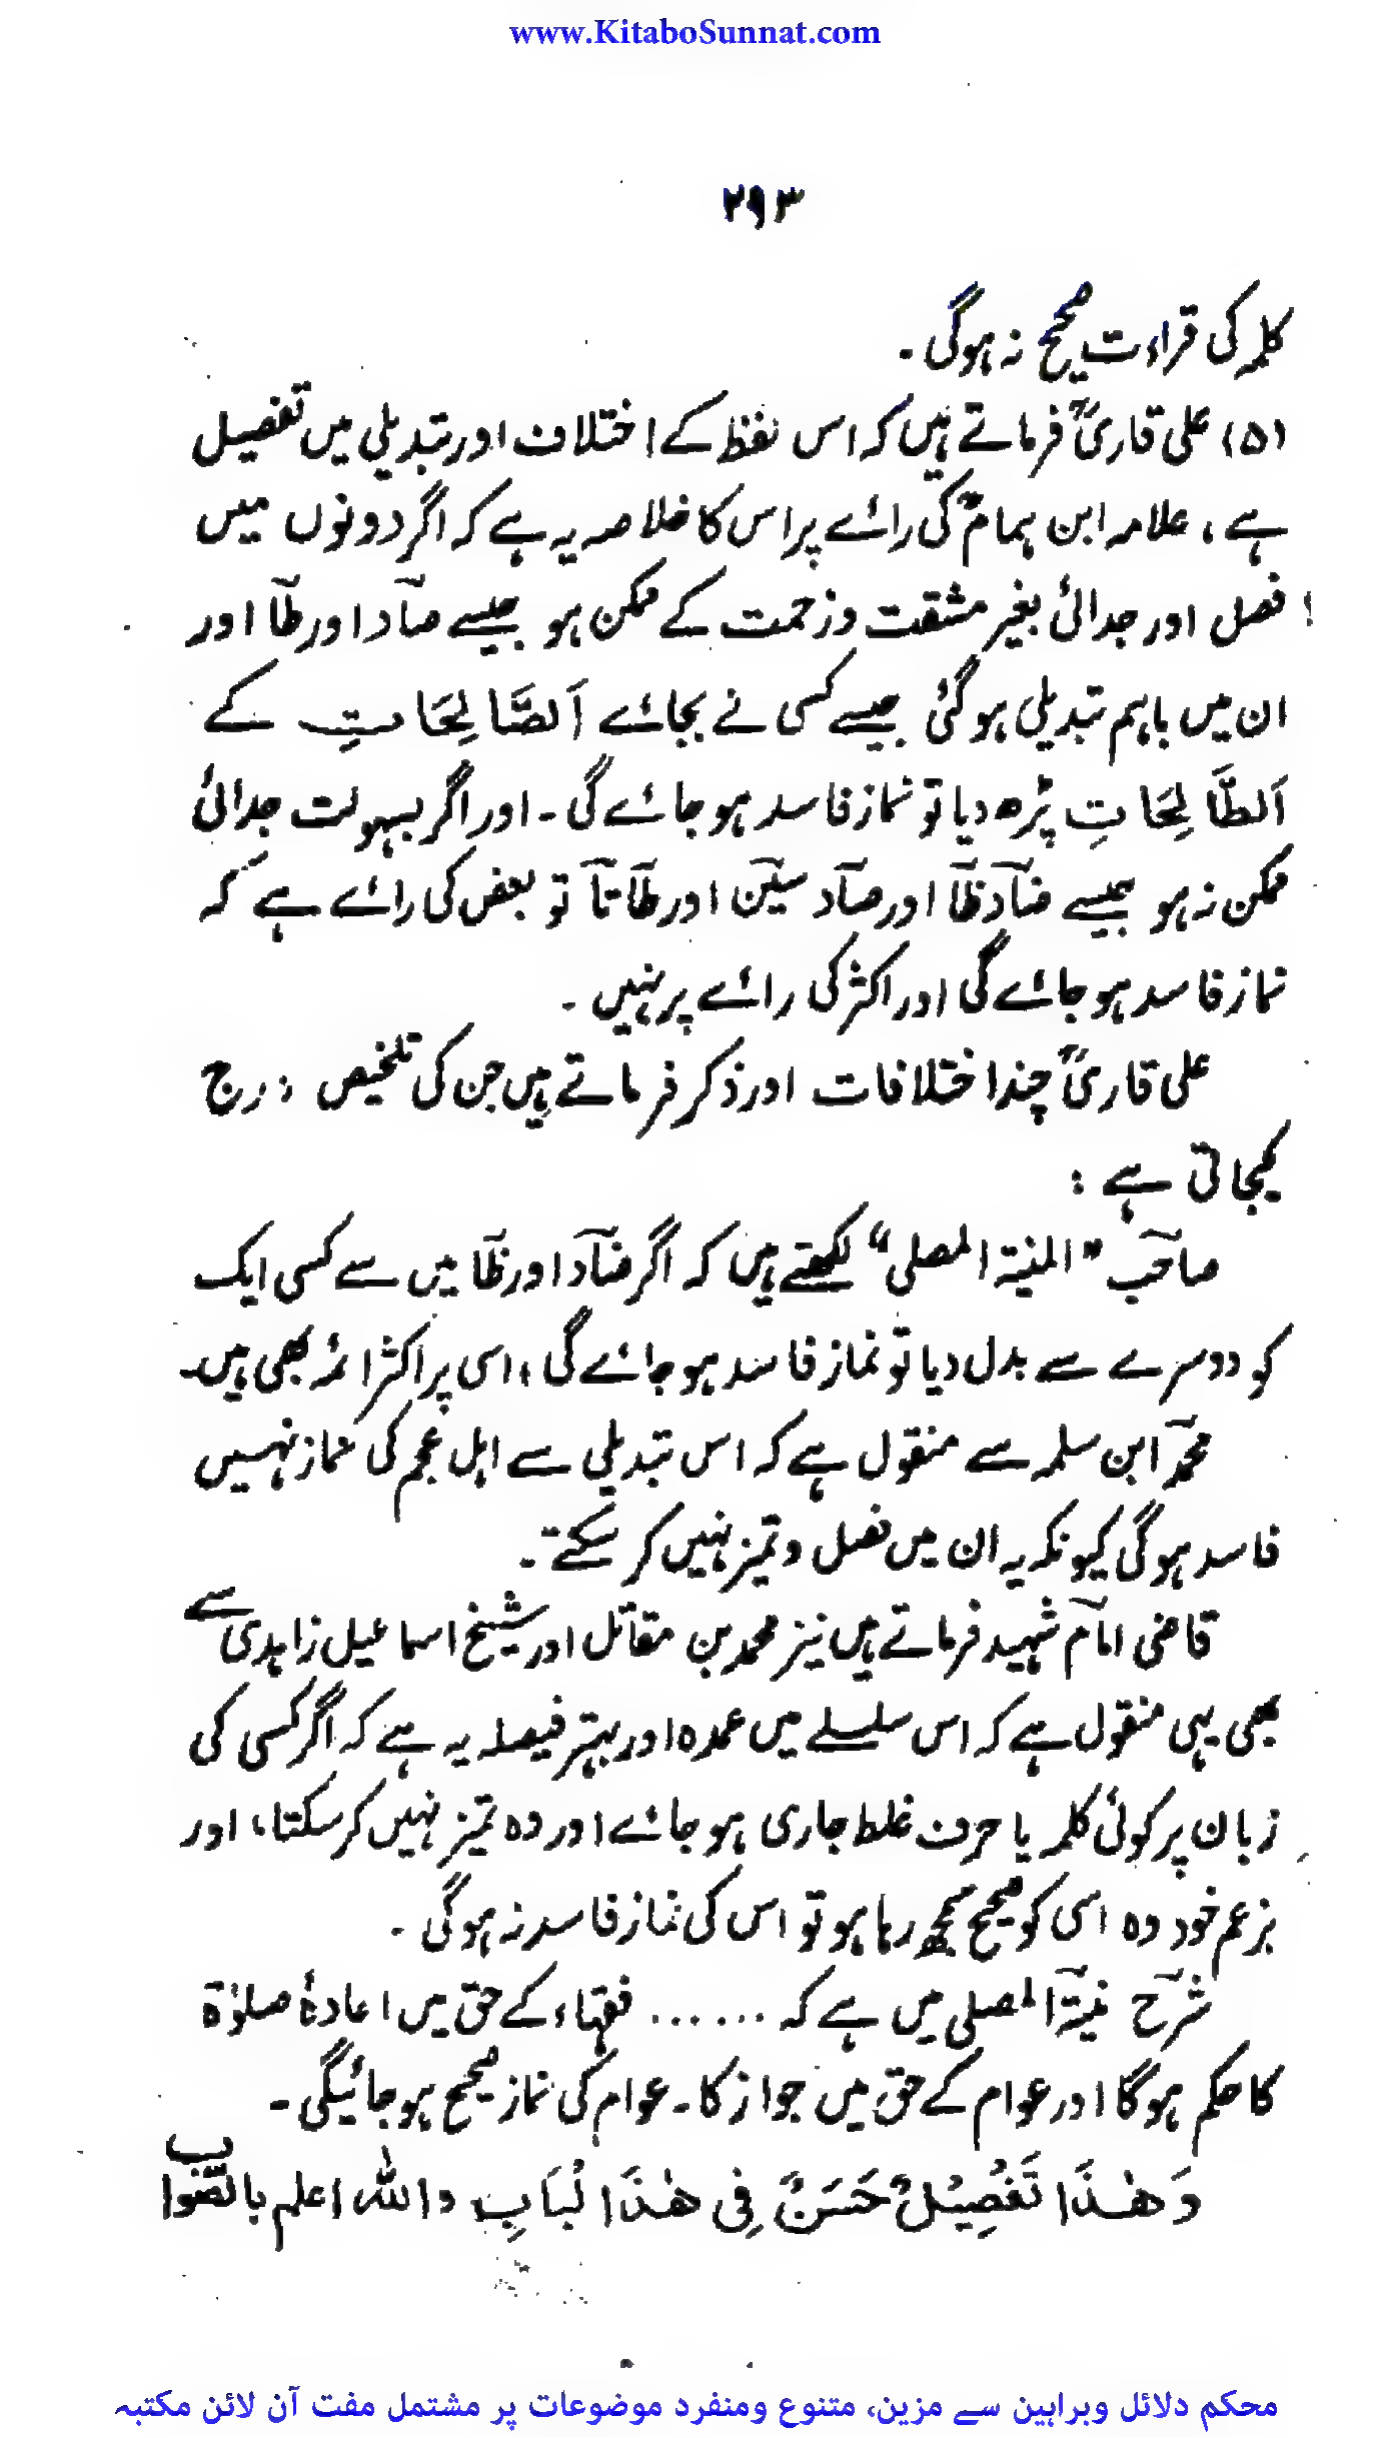 www.KitaboSunnat.com
۲۹۳
کلمہ کی قراءت صحیح نہ ہوگی۔
(۵) علی قاریؒ فرماتے ہیں کہ اس لفظ کے اختلاف اور تبدیلی میں تفصیل
ہے، علامہ ابن ہمامؒ کی رائے پر اس کا خلاصہ یہ ہے کہ اگر دونوں میں
فصل اور جدائی بغیر مشقت وزحمت کے ممکن ہو جیسے صآد اور طآ اور
ان میں باہم تبدیلی ہوگئی جیسے کسی نے بجائے اَلصَّالِحَاتِ کے
اَلطَّالِحَاتِ پڑھ دیا تو نماز فاسد ہوجائے گی۔ اور اگر بسہولت جدائی
ممکن نہ ہو جیسے ضآد ظآ اور صآد سیٓن اور طآ تآ تو بعض کی رائے ہے کہ
نماز فاسد ہوجائے گی اور اکثر کی رائے پر نہیں۔
علی قاریؒ چند اختلافات اور ذکر فرماتے ہیں جن کی تلخیص درج
کیجاتی ہے :
صاحب "المنیۃ المصلی" لکھتے ہیں کہ اگر ضآد اور ظآ میں سے کسی ایک
کو دوسرے سے بدل دیا تو نماز فاسد ہوجائے گی، اسی پر اکثر ائمہ بھی ہیں۔
محمد ابن سلمہ سے منقول ہے کہ اس تبدیلی سے اہل عجم کی نماز نہیں
فاسد ہوگی کیونکہ یہ ان میں فصل و تمیز نہیں کر سکتے۔
قاضی امام شہید فرماتے ہیں نیز محمد بن مقاتل اور شیخ اسماعیل زاہدی سے
بھی یہی منقول ہے کہ اس سلسلے میں عمدہ اور بہتر فیصلہ یہ ہے کہ اگر کسی کی
زبان پر کوئی کلمہ یا حرف غلط جاری ہوجائے اور وہ تمیز نہیں کرسکتا، اور
بزعم خود وہ اسی کو صحیح سمجھ رہا ہو تو اس کی نماز فاسد نہ ہوگی۔
شرح منیۃ المصلی میں ہے کہ ...... فقہاء کے حق میں اعادۂ صلوٰۃ
کا حکم ہوگا اور عوام کے حق میں جواز کا۔ عوام کی نماز صحیح ہوجائیگی۔
وَھٰذَا تَفْصِیْلٌ حَسَنٌ فِی ھٰذَا لْبَابِ واللہ اعلم بالصّواب
محکم دلائل وبراہین سے مزین، متنوع ومنفرد موضوعات پر مشتمل مفت آن لائن مکتبہ